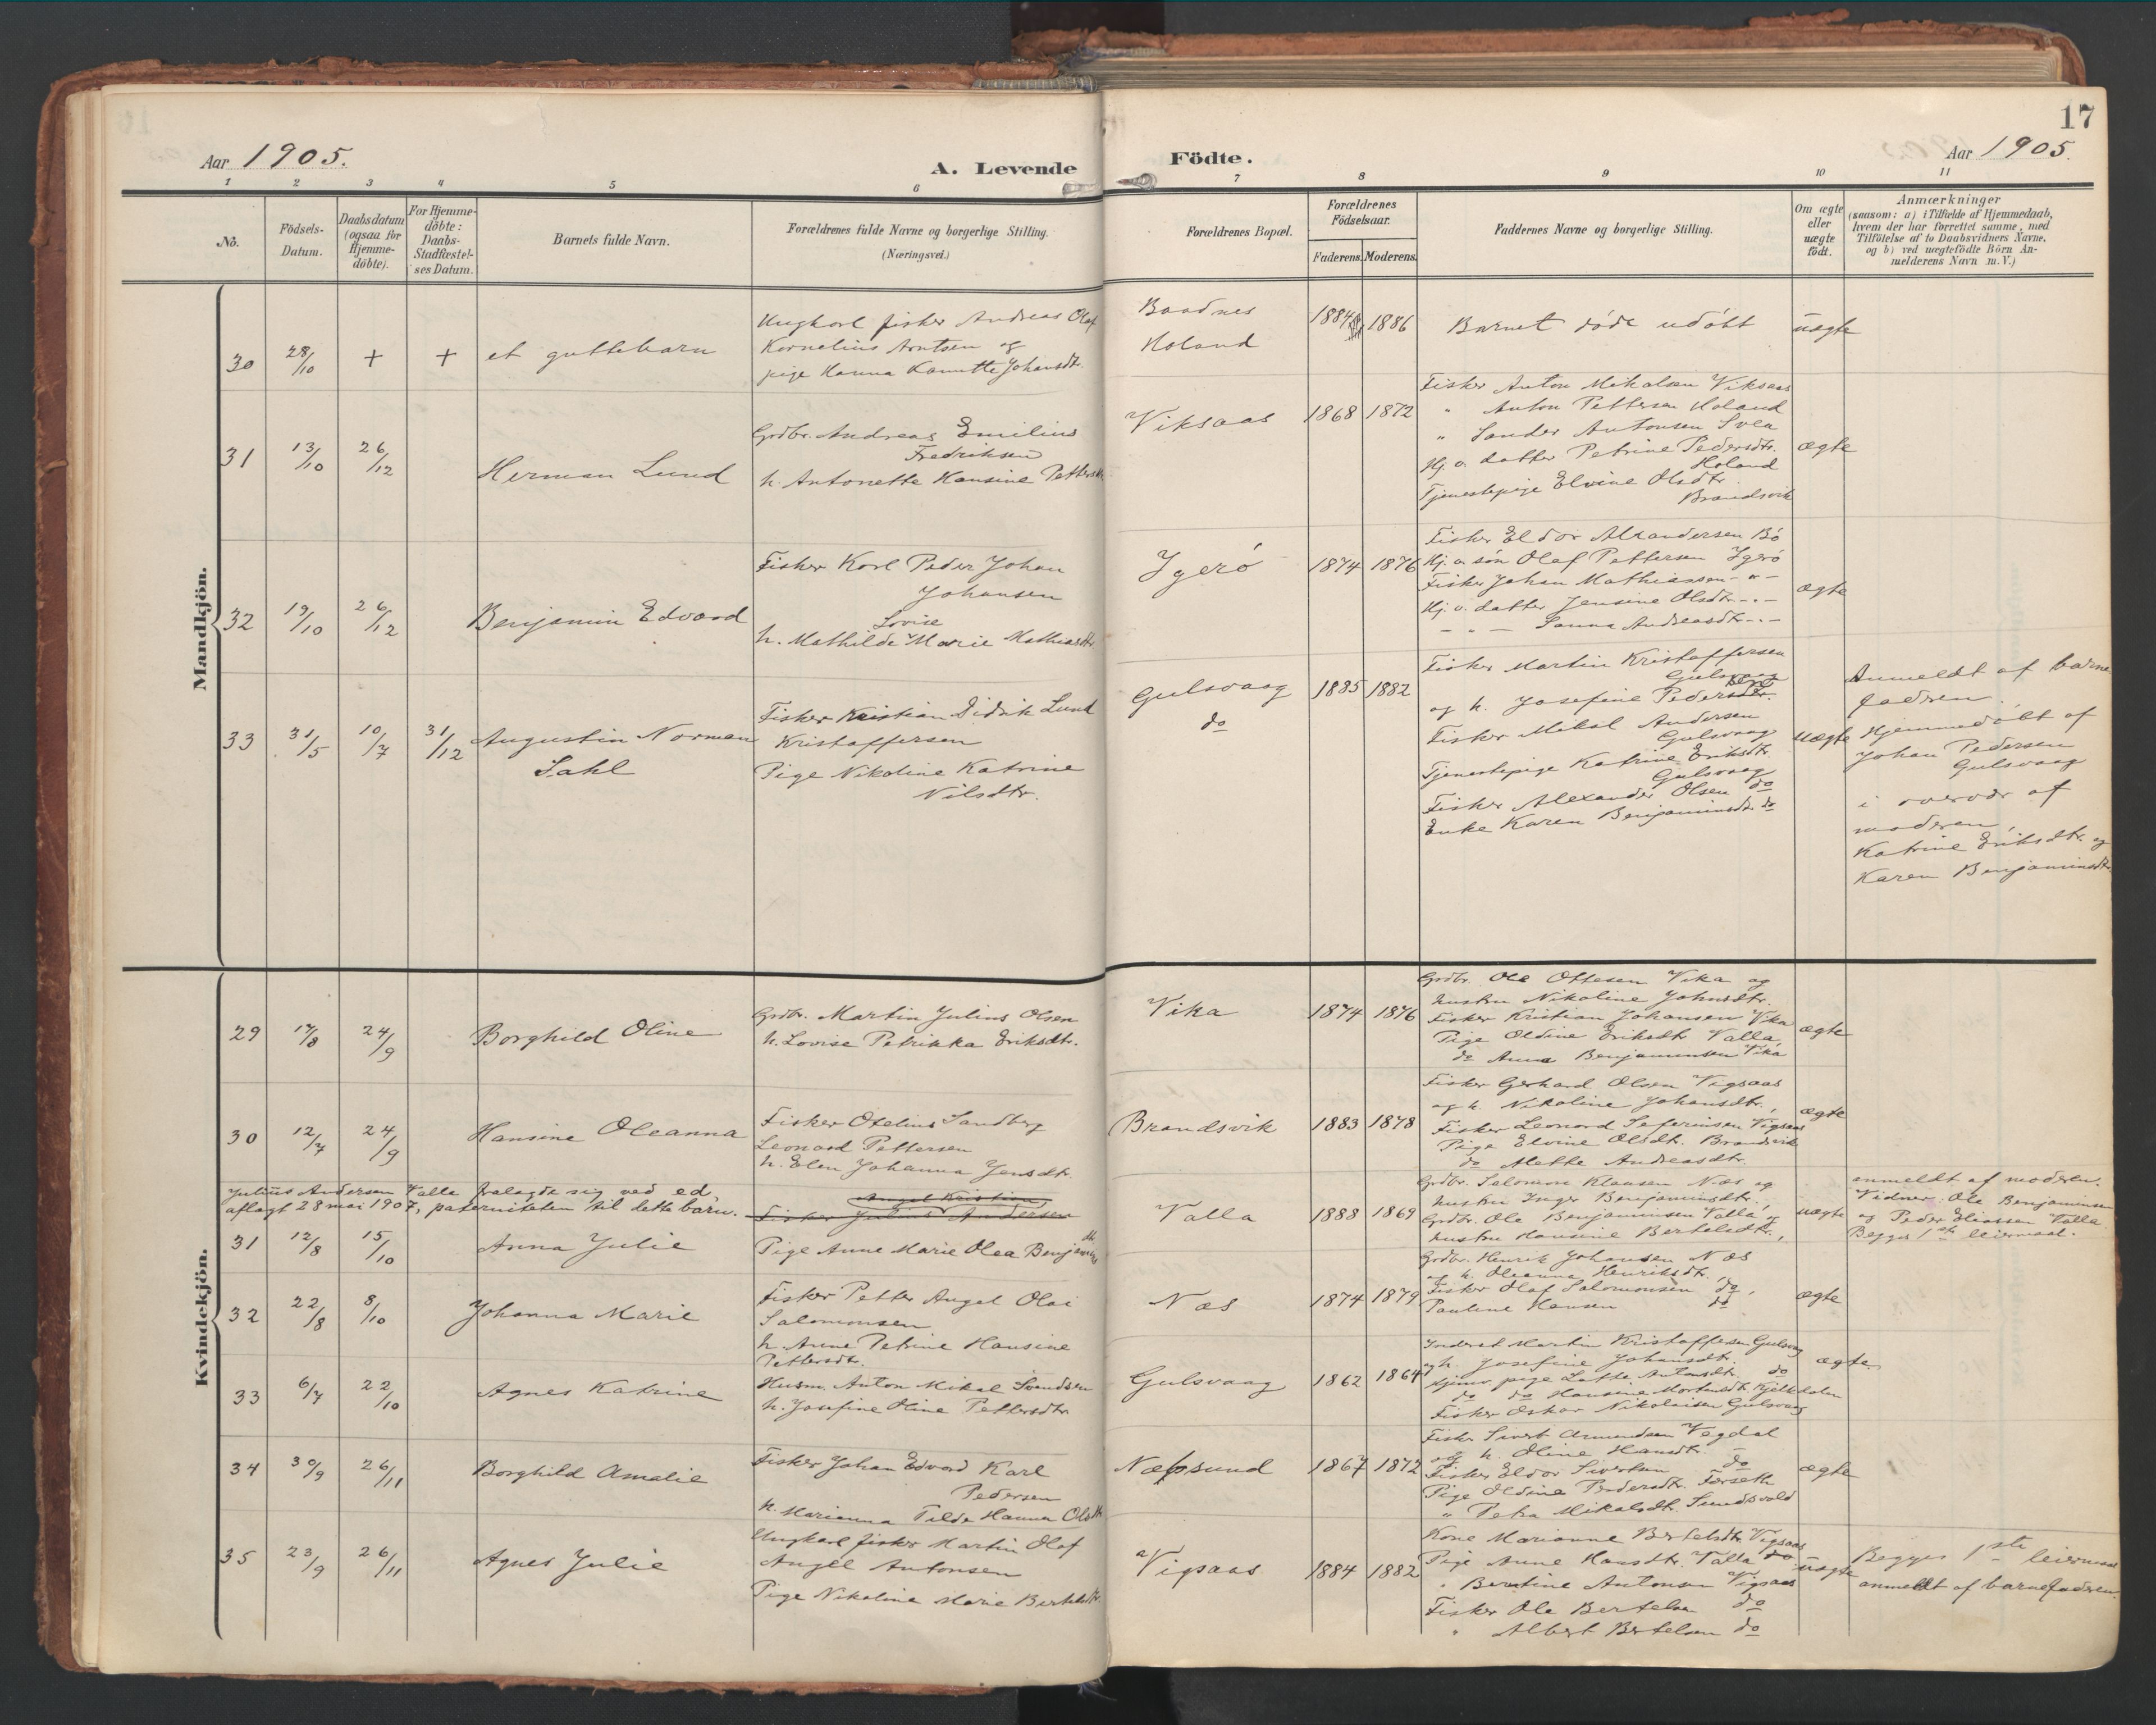 17
Aar 1905.
A. Levende Födte.
Aar 1905.
1 2 3 4 5 6 7 8 9 10 11
No.
Födsels-Datum.
Daabsdatum (ogsaa for Hjemme-döbte).
For Hjemme-döbte: Daabs-Stadfæstel-ses Datum.
Barnets fulde Navn.
Forældrenes fulde Navne og borgerlige Stilling.
(Næringsvei.)
Forældrenes Bopæl.
Forældrenes Födselsaar.
Faderens. Moderens.
Faddernes Navne og borgerlige Stilling.
Om ægte eller uægte födt.
Anmærkninger
(saasom: a) i Tilfælde af Hjemmedaab,
hvem der har forrettet samme, med
Tilföielse af to Daabsvidners Navne,
og b) ved uægtefödte Börn An-
melderens Navn m. V.)
Mandkjön.
30 28/10 + + et guttebarn
Ungkarl fisker Andreas Olaf
Kornelius Arntsen og
pige Hanna Hanette Johansdtr.
Baadnes
Holand
1884 1886
Barnet döde udöbt
uægte
31 13/10 26/12 Herman Lund
Grdbr. Andreas Emilius
Fredriksen
h. Antonette Hansine Pettersdtr.
Viksaas 1868 1872
Fisker Anton Mikalsen Viksaas
" Anton Pettersen Holand
" Sander Antonsen Svea
Hj. v. datter Petrine Pedersdtr.
Holand
Tjenestepige Elvine Olsdtr.
Brandsvik
ægte
32 19/10 26/12 Benjamin Edvard
Fisker Karl Peder Johan
Johansen
Lovise
h. Mathilde Marie Mathiasdtr.
Igerö 1874 1876
Fisker Eldor Alexandersen Bö
Hj. v. sön Olaf Pettersen Igerö
Fisker Johan Mathiassen - " -
Hj. v. datter Jensine Olsdtr. - " -
- " - Sanna Andreasdtr. - " -
ægte
33 31/5 10/7 31/12 Augustin Norman
Sahl
Fisker Kristian Didrik Lund
Kristoffersen
Pige Nikoline Katrine
Nilsdtr.
Gulsvaag
do
1885 1882
Fisker Martin Kristoffersen
Gulsvaag
og h. Josefine Pedersdtr.
Fisker Mikal Andersen
Gulsvaag
Tjenestepige Katrine Eriksdtr.
Gulsvaag
Fisker Alexander Olsen do
Enke Karen Benjaminsdtr. do
uægte
Anmeldt af barne
faderen.
Hjemmedöbt af
Johan Pedersen
Gulsvaag
i overvær af
moderen,
Katrine Eriksdtr. og
Karen Benjaminsdtr.
Kvindekjön.
29 17/8 24/9 Borghild Oline
Grdbr. Martin Julius Olsen
h. Lovise Petrikka Eriksdtr.
Vika 1874 1876
Grdbr. Ole Ottesen Vika og
hustru Nikoline Johnsdtr.
Fisker Kristian Johansen Vika
Pige Oldine Eriksdtr. Valla
do Anna Benjaminsen Vika
ægte
30 12/7 24/9 Hansine Oleanna
Fisker Otelius Sandberg
Leonard Pettersen
h. Elen Johanna Jensdtr.
Brandsvik 1883 1878
Fisker Gerhard Olsen Vigsaas
og h. Nikoline Johansdtr.,
Fisker Leonard Seferinsen Vigsaas
Pige Elvine Olsdtr. Brandsvik
do Mette Andreasdtr.
ægte
Julius Andersen Valle fralagde sig ved ed,
aflagt 28 mai 1907, paterniteten til dette barn.
31 12/8 15/10 Anna Julie
Angel Kristian
Fisker Julius Andersen
Pige Anne Marie Olea Benjamins
dtr
Valla 1888 1869
Grdbr. Salomon Klausen Næs og
hustru Inger Benjaminsdtr.,
Grdbr. Ole Benjaminsen Valla og
hustru Hansine Bertelsdtr.,
uægte
anmeldt af moderen.
Vidner: Ole Benjaminsen
og Peder Eliassen Valla
Begges 1ste leiermaal.
32 22/8 8/10 Johanna Marie
Fisker Petter Angel Olai
Salomonsen
h. Anne Petrine Hansine
Pettersdtr.
Næs 1874 1879
Grdbr. Henrik Johansen Næs
og h. Oleanna Henriksdtr.,
Fisker Olaf Salomonsen do,
Pauline Hansen do
ægte
33 6/7 22/10 Agnes Katrine
Husm. Anton Mikal Svendsen
h. Josefine Oline Pettersdtr.
Gulsvaag 1862 1864
Inderst Martin Kristoffersen Gulsvaag
og h. Josefine Johansdtr.
hjemv. pige Lotte Antonsdtr. do
do do Hansine Mortensdtr. Kjelkholm
Fisker Oskar Nikolaisen Gulsvaag
ægte
34 30/9 26/11 Borghild Amalie
Fisker Johan Edvard Karl
Pedersen
h. Marianna Tilde Hanna Olsdtr.
Næpsund 1867 1872
Fisker Sivert Amundsen Vegdal
og h. Oline Hansdtr.
Fisker Eldor Sivertsen do
Pige Oldine Pedersdtr. Forseth
" Petra Mikalsdtr. Sundsvold
ægte
35 23/9 26/11 Agnes Julie
Ungkarl fisker Martin Olaf
Angel Antonsen
Pige Nikoline Marie Bertelsdtr.
Vigsaas 1884 1882
Kone Marianne Bertelsdtr. Vigsaas
Pige Anne Hansdtr. Valla do
" Berntine Antonsen Vigsaas
Fisker Ole Bertelsen do
" Albert Bertelsen do
uægte
Begges 1ste leiermaal
anmeldt af barnefaderen.